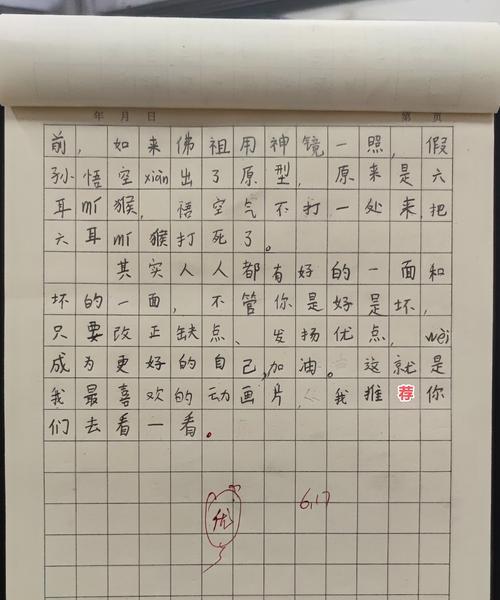 年 月 日 第 页
前，如来佛祖用神镜一照，假
孙悟空xiàn出了原型，原来是六
耳mí猴，悟空气不打一处来，把
六耳mí猴打死了。
其实人人都有好的一面和
坏的一面，不管你是好是坏，
只要改正缺点、发扬优点，wèi
成为更好的自己，加油。这就是
我最喜欢的动画片，我推荐你
们去看一看。
优 6.17